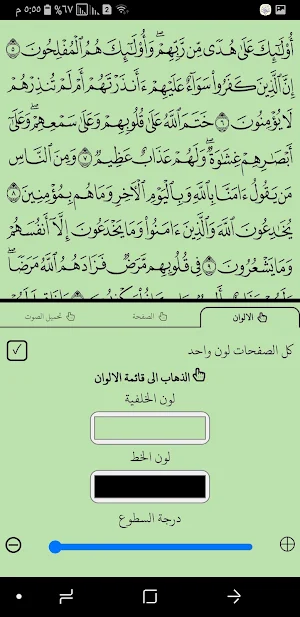 ٥:٥٥ م ٦٧%
أُوْلَٰٓئِكَ عَلَىٰ هُدًى مِّن رَّبِّهِمْۖ وَأُوْلَٰٓئِكَ هُمُ ٱلْمُفْلِحُونَ ٥
إِنَّ ٱلَّذِينَ كَفَرُوا۟ سَوَآءٌ عَلَيْهِمْ ءَأَنذَرْتَهُمْ أَمْ لَمْ تُنذِرْهُمْ
لَا يُؤْمِنُونَ ٦ خَتَمَ ٱللَّهُ عَلَىٰ قُلُوبِهِمْ وَعَلَىٰ سَمْعِهِمْۖ وَعَلَىٰٓ
أَبْصَٰرِهِمْ غِشَٰوَةٌۖ وَلَهُمْ عَذَابٌ عَظِيمٌ ٧ وَمِنَ ٱلنَّاسِ
مَن يَقُولُ ءَامَنَّا بِٱللَّهِ وَبِٱلْيَوْمِ ٱلْءَاخِرِ وَمَا هُم بِمُؤْمِنِينَ ٨
يُخَٰدِعُونَ ٱللَّهَ وَٱلَّذِينَ ءَامَنُوا۟ وَمَا يَخْدَعُونَ إِلَّآ أَنفُسَهُمْ
وَمَا يَشْعُرُونَ ٩ فِى قُلُوبِهِم مَّرَضٌ فَزَادَهُمُ ٱللَّهُ مَرَضًاۖ
الالوان الصفحة تحميل الصوت
كل الصفحات لون واحد
الذهاب الى قائمة الالوان
لون الخلفية
لون الخط
درجة السطوع